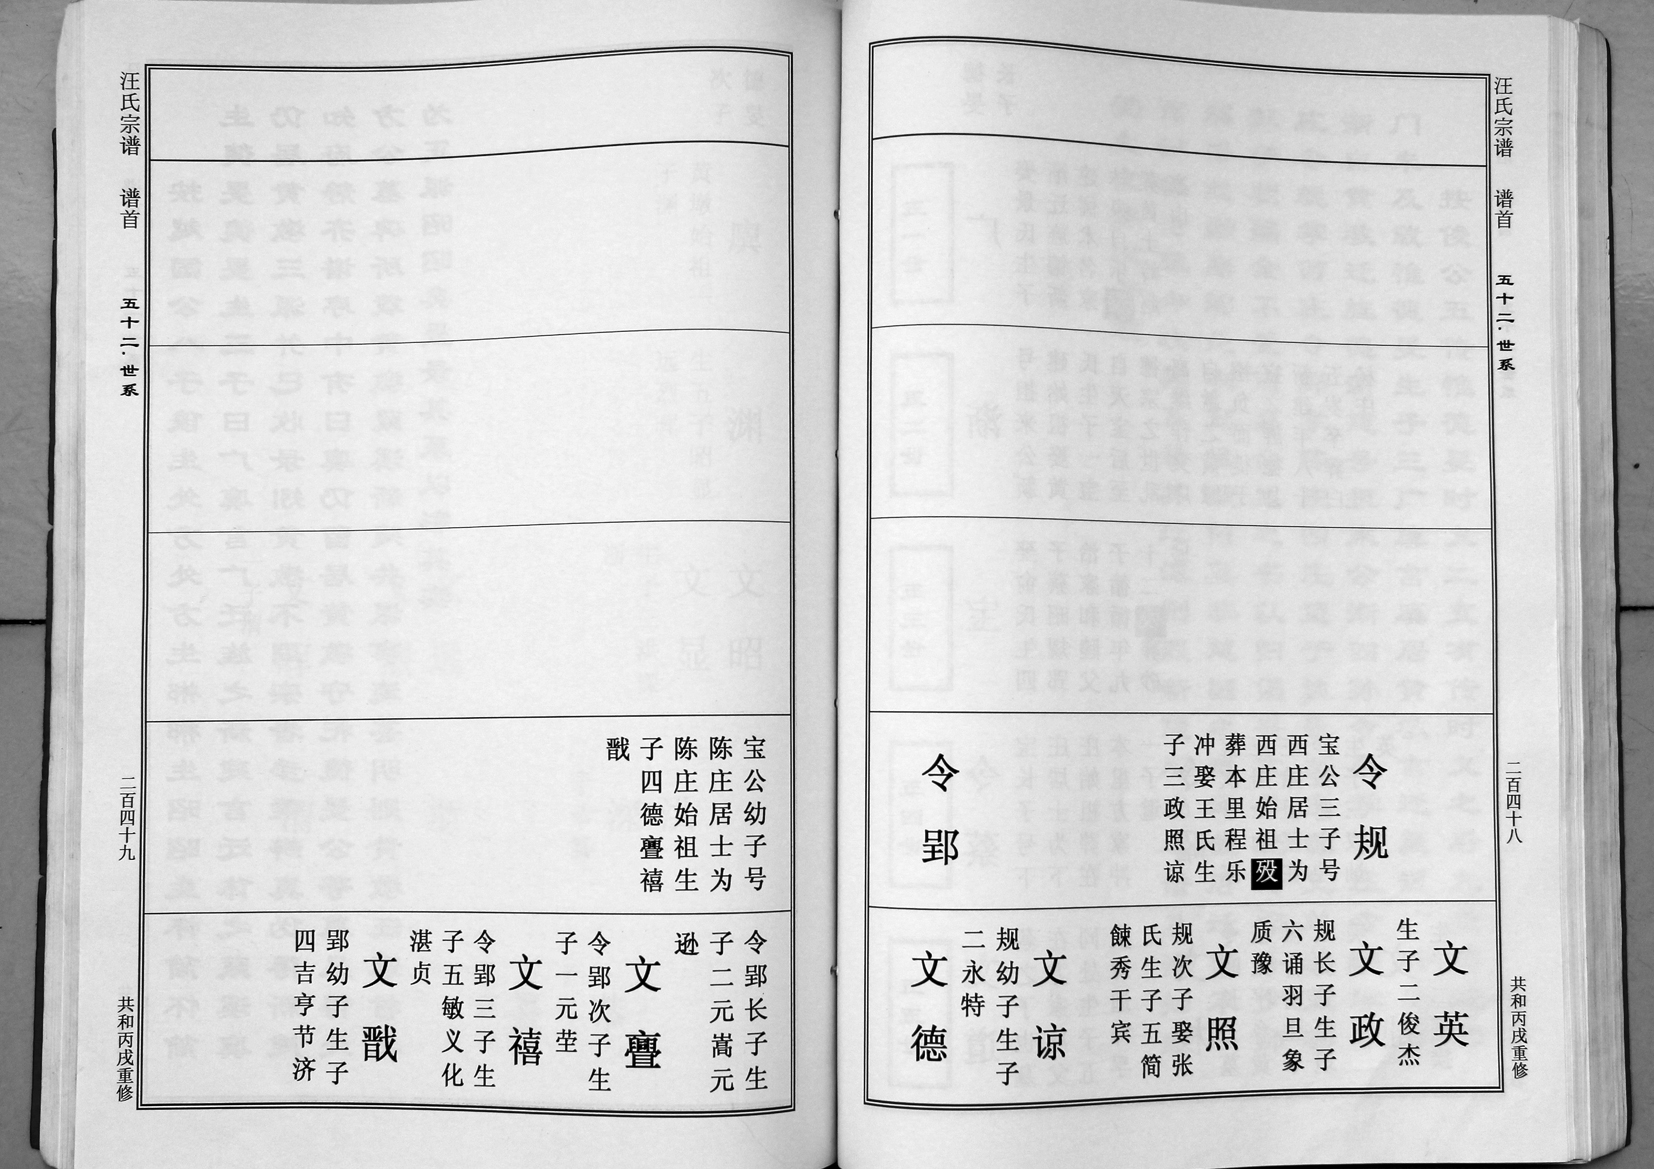 汪氏宗谱
谱首
五十二·世系
二百四十八
共和丙戌重修
令规
宝公三子号
西庄居士为
西庄始祖殁
葬本里程乐
冲娶王氏生
子三政照谅
令郢
文英
生子二俊杰
文政
规长子生子
六诵羽旦象
质豫
文照
规次子娶张
氏生子五简
餗秀干宾
文谅
规幼子生子
二永特
文德
汪氏宗谱
谱首
五十二·世系
二百四十九
共和丙戌重修
宝公幼子号
陈庄居士为
陈庄始祖生
子四德亹禧
戬
令郢长子生
子二元嵩元
逊
文亹
令郢次子生
子一元莹
文禧
令郢三子生
子五敏义化
湛贞
文戬
郢幼子生子
四吉亨节济